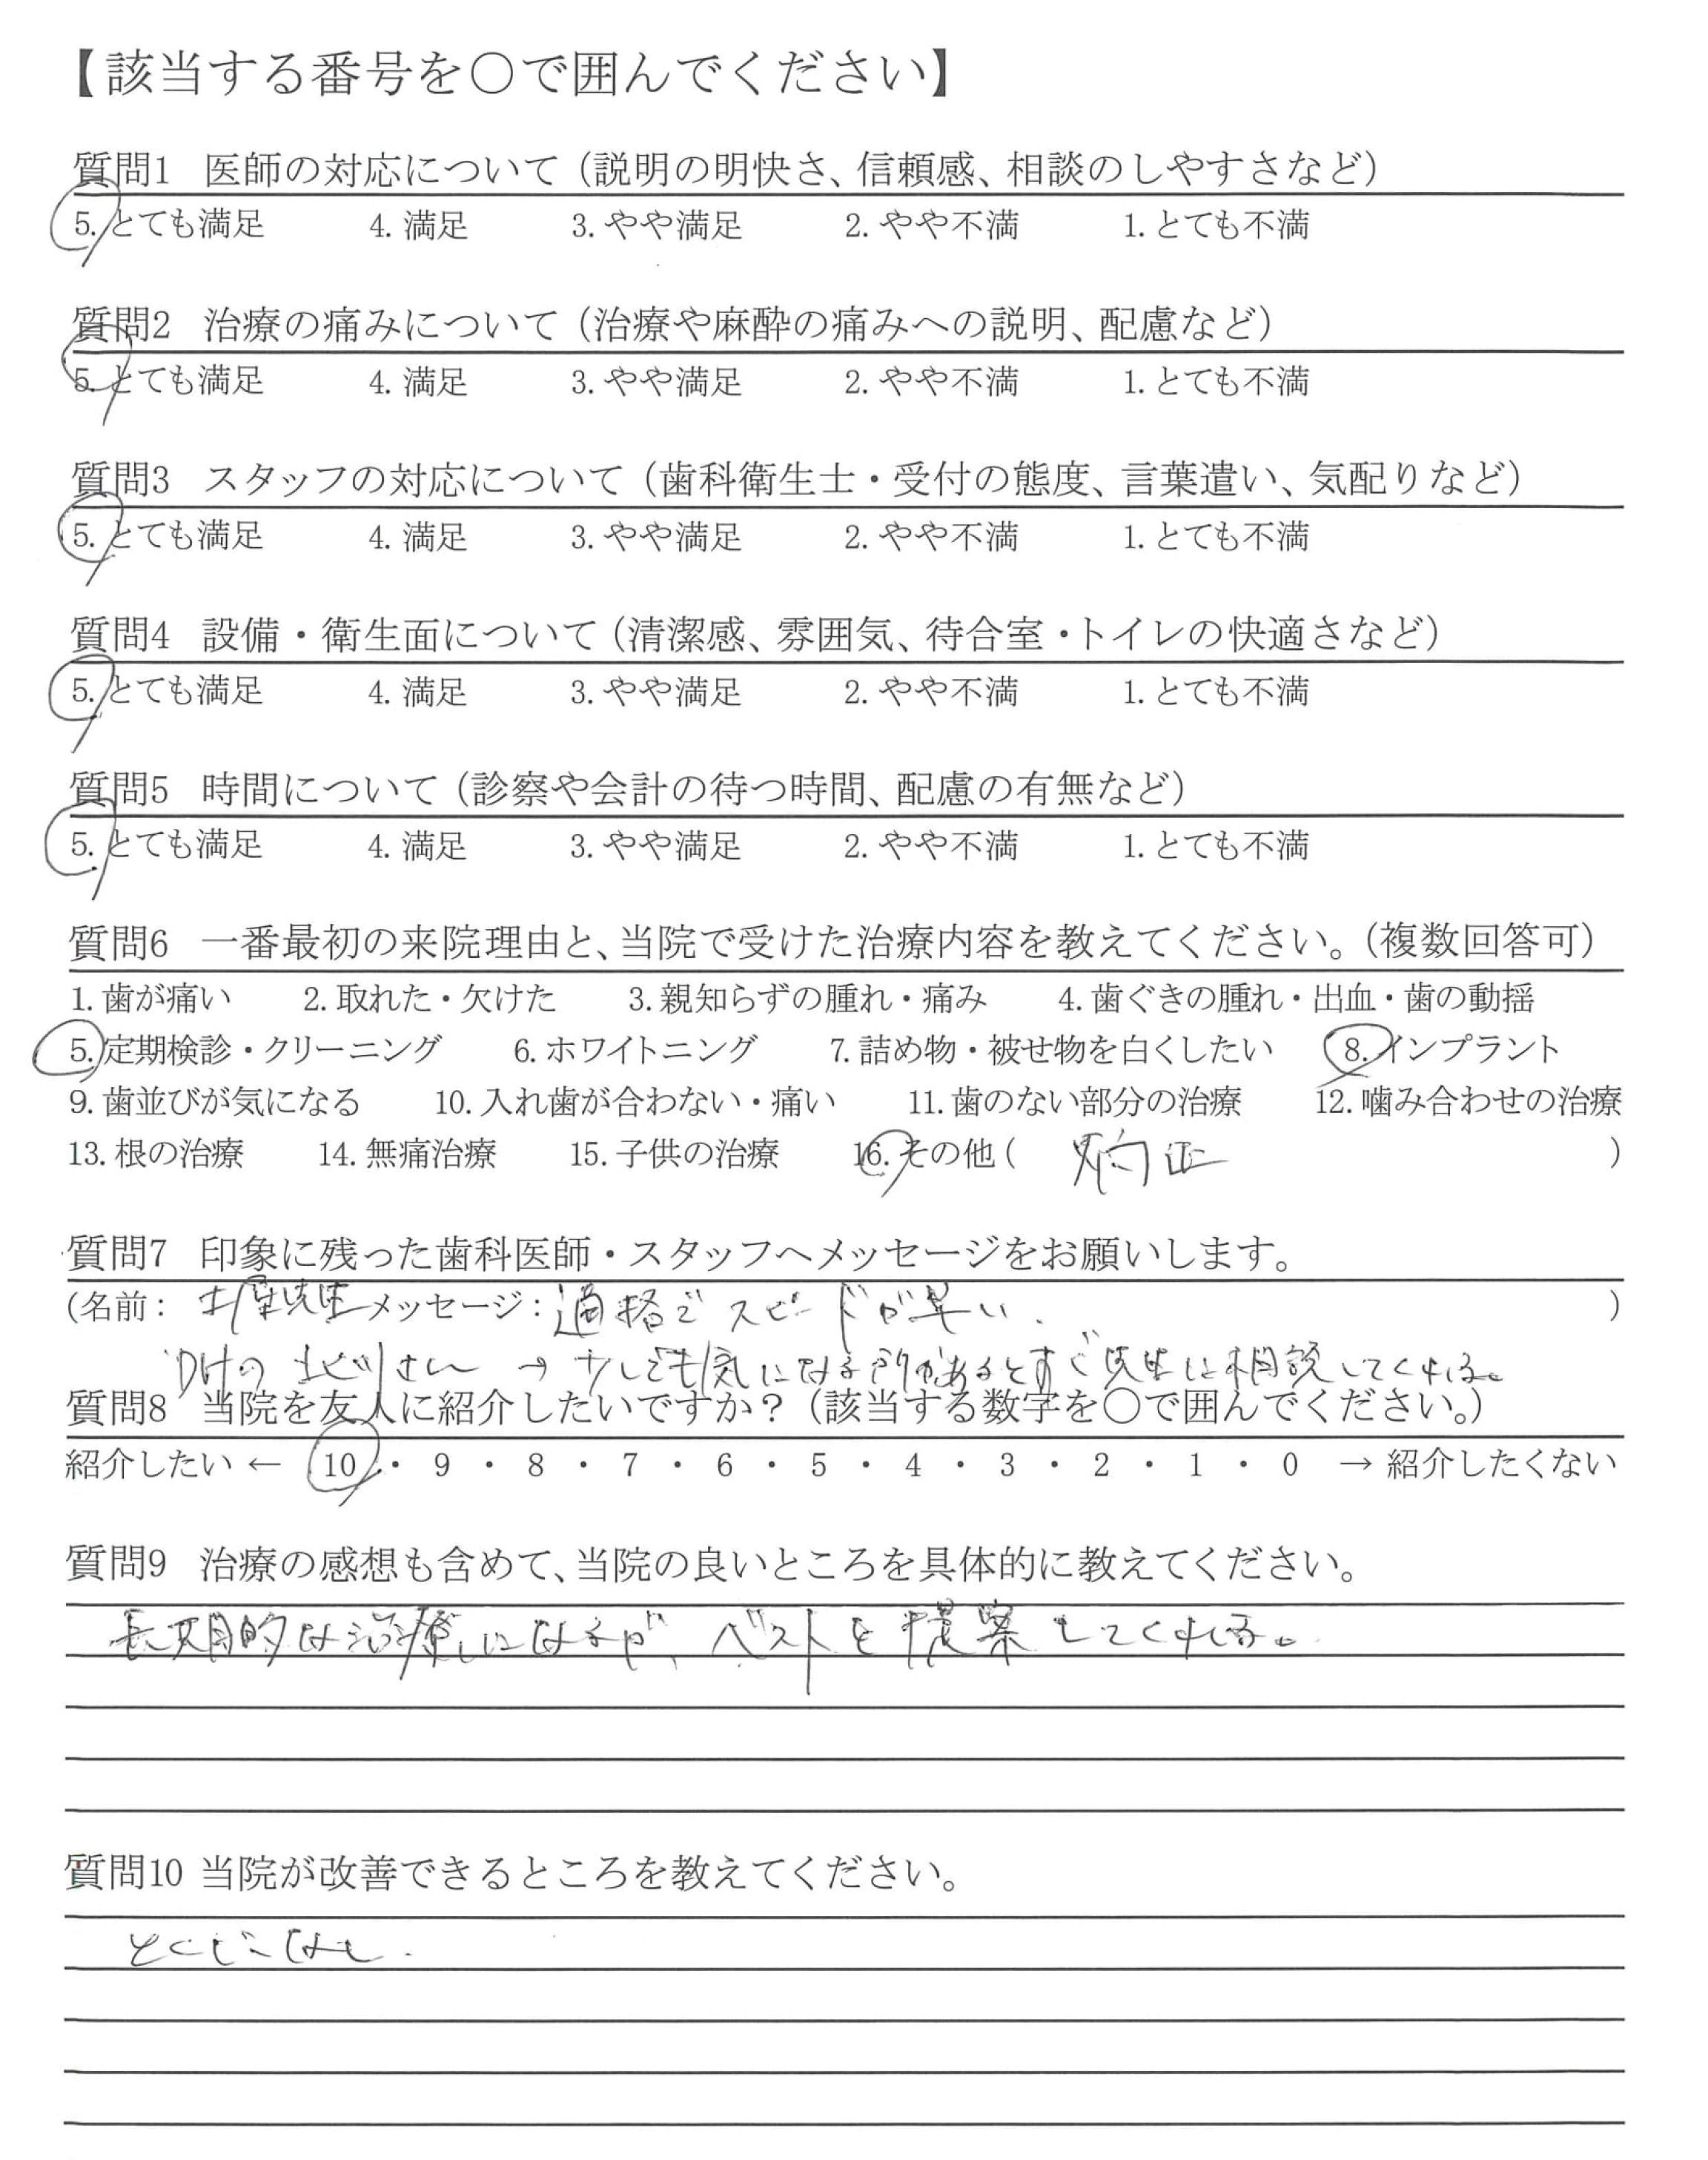 【該当する番号を〇で囲んでください】
質問1 医師の対応について（説明の明快さ、信頼感、相談のしやすさなど）
5. とても満足 4. 満足 3. やや満足 2. やや不満 1. とても不満
質問2 治療の痛みについて（治療や麻酔の痛みへの説明、配慮など）
5. とても満足 4. 満足 3. やや満足 2. やや不満 1. とても不満
質問3 スタッフの対応について（歯科衛生士・受付の態度、言葉遣い、気配りなど）
5. とても満足 4. 満足 3. やや満足 2. やや不満 1. とても不満
質問4 設備・衛生面について（清潔感、雰囲気、待合室・トイレの快適さなど）
5. とても満足 4. 満足 3. やや満足 2. やや不満 1. とても不満
質問5 時間について（診察や会計の待つ時間、配慮の有無など）
5. とても満足 4. 満足 3. やや満足 2. やや不満 1. とても不満
質問6 一番最初の来院理由と、当院で受けた治療内容を教えてください。（複数回答可）
1. 歯が痛い 2. 取れた・欠けた 3. 親知らずの腫れ・痛み 4. 歯ぐきの腫れ・出血・歯の動揺
5. 定期検診・クリーニング 6. ホワイトニング 7. 詰め物・被せ物を白くしたい 8. インプラント
9. 歯並びが気になる 10. 入れ歯が合わない・痛い 11. 歯のない部分の治療 12. 噛み合わせの治療
13. 根の治療 14. 無痛治療 15. 子供の治療 16. その他（ 矯正 ）
質問7 印象に残った歯科医師・スタッフへメッセージをお願いします。
（名前： 先生 メッセージ： 適格でスピードが早い. ）
さん → 少しでも気になる所があるとすぐ先生に相談してくれる。
質問8 当院を友人に紹介したいですか？（該当する数字を〇で囲んでください。）
紹介したい ← 10 ・ 9 ・ 8 ・ 7 ・ 6 ・ 5 ・ 4 ・ 3 ・ 2 ・ 1 ・ 0 → 紹介したくない
質問9 治療の感想も含めて、当院の良いところを具体的に教えてください。
長期的な治療になるが、ベストを提案してくれる。
質問10 当院が改善できるところを教えてください。
とくになし.